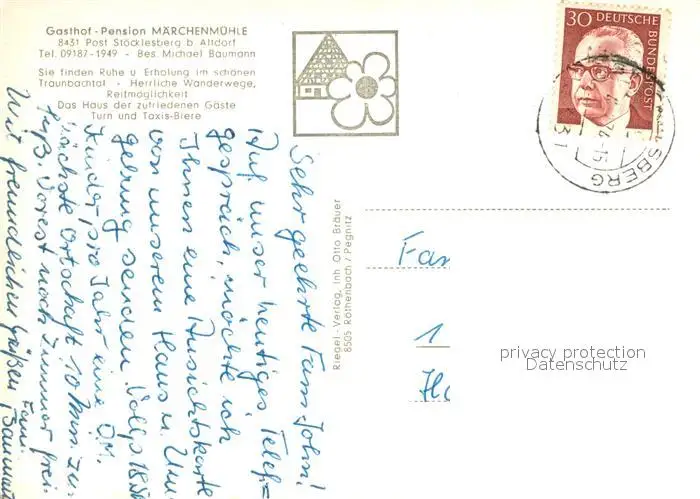 Gasthof - Pension MÄRCHENMÜHLE
8431 Post Stöcklesberg b Altdorf
Tel. 09187-1949 - Bes. Michael Baumann
Sie finden Ruhe u Erholung im schönen
Traunbachtal - Herrliche Wanderwege,
Reitmöglichkeit
Das Haus der zufriedenen Gäste
Turn und Taxis-Biere
30 DEUTSCHE
BUNDESPOST
SBERG
-15
31
Riegel-Verlag, Inh Otto Bräuer
8505 Röthenbach / Pegnitz
Sehr geehrte Fam. John!
Auf unser heutiges Telef=
gespräch, möchte ich
Ihnen eine Ansichtskarte
von unserem Haus u. Um=
gebung senden. Vollp. 18.50
Kinder pro Jahr eine D.M.
nächste Ortschaft 10 Min. zu
Fuß. Vorest noch Zimmer frei.
Mit freundlichen Grüßen Fam.
Baumann
Fam
1
Ho
privacy protection
Datenschutz